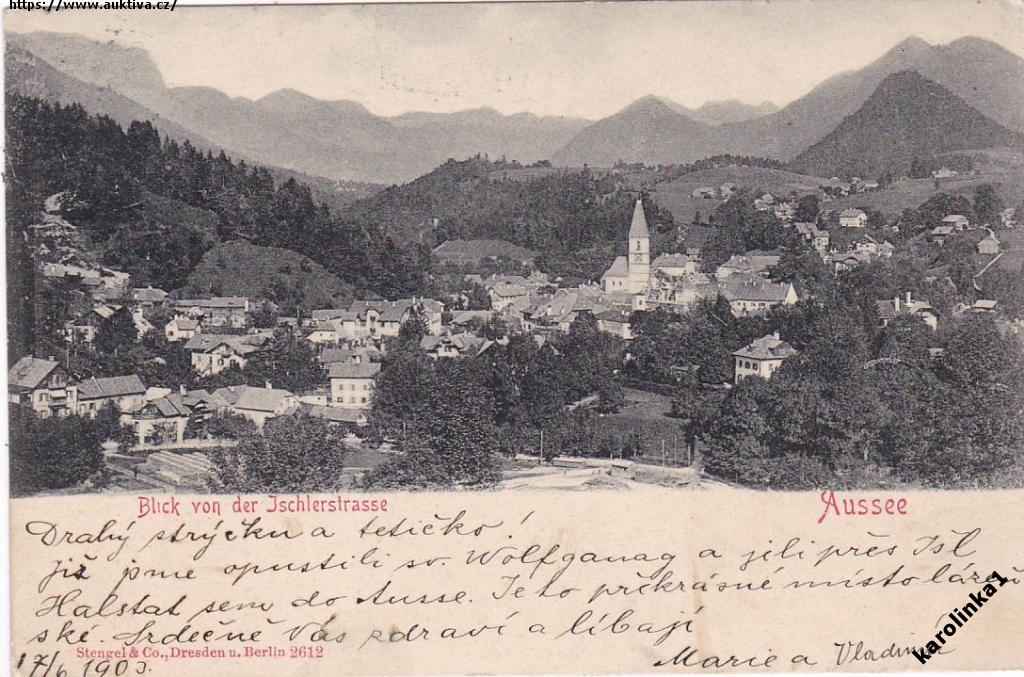 https://www.auktiva.cz/
Blick von der Ischlerstrasse
Aussee
Drahý strýčku a tetičko!
již jsme opustili sv. Wolfganag a jeli přes Išl
Halstat sem do Ausse. Je to překrásné místo lázeň
ské. Srdečně Vás zdraví a líbají
Stengel & Co., Dresden u. Berlin 2612
17/6 1903.
Marie a
karolinka1